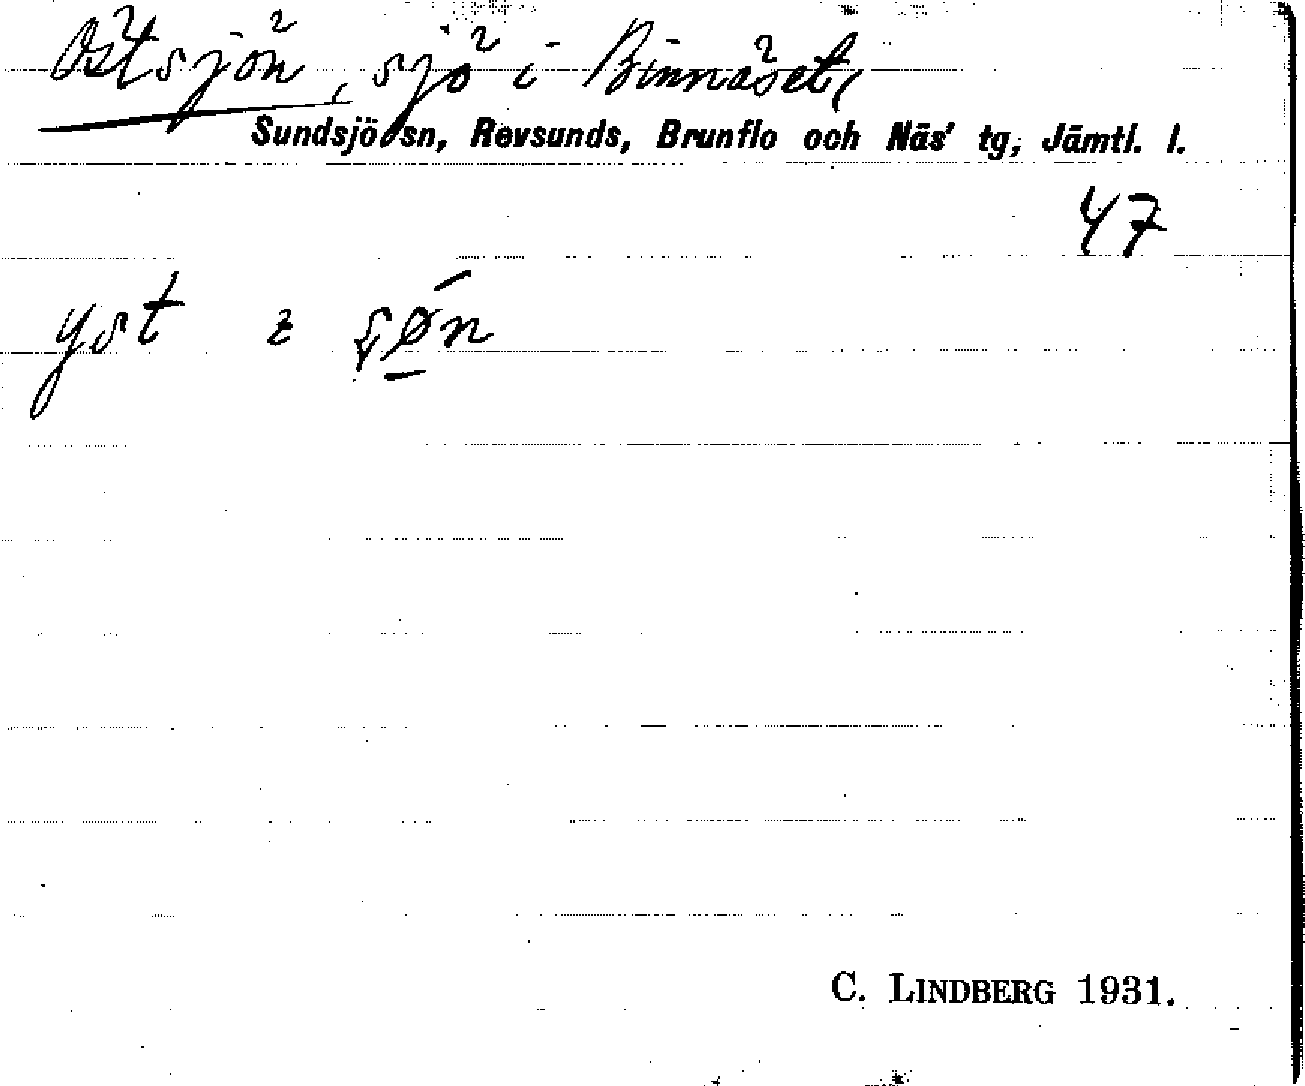 Östsjön, sjö i Binnäset,
Sundsjö sn, Revsunds, Brunflo och Näs' tg, Jämtl. l.
47
C. LINDBERG 1931.